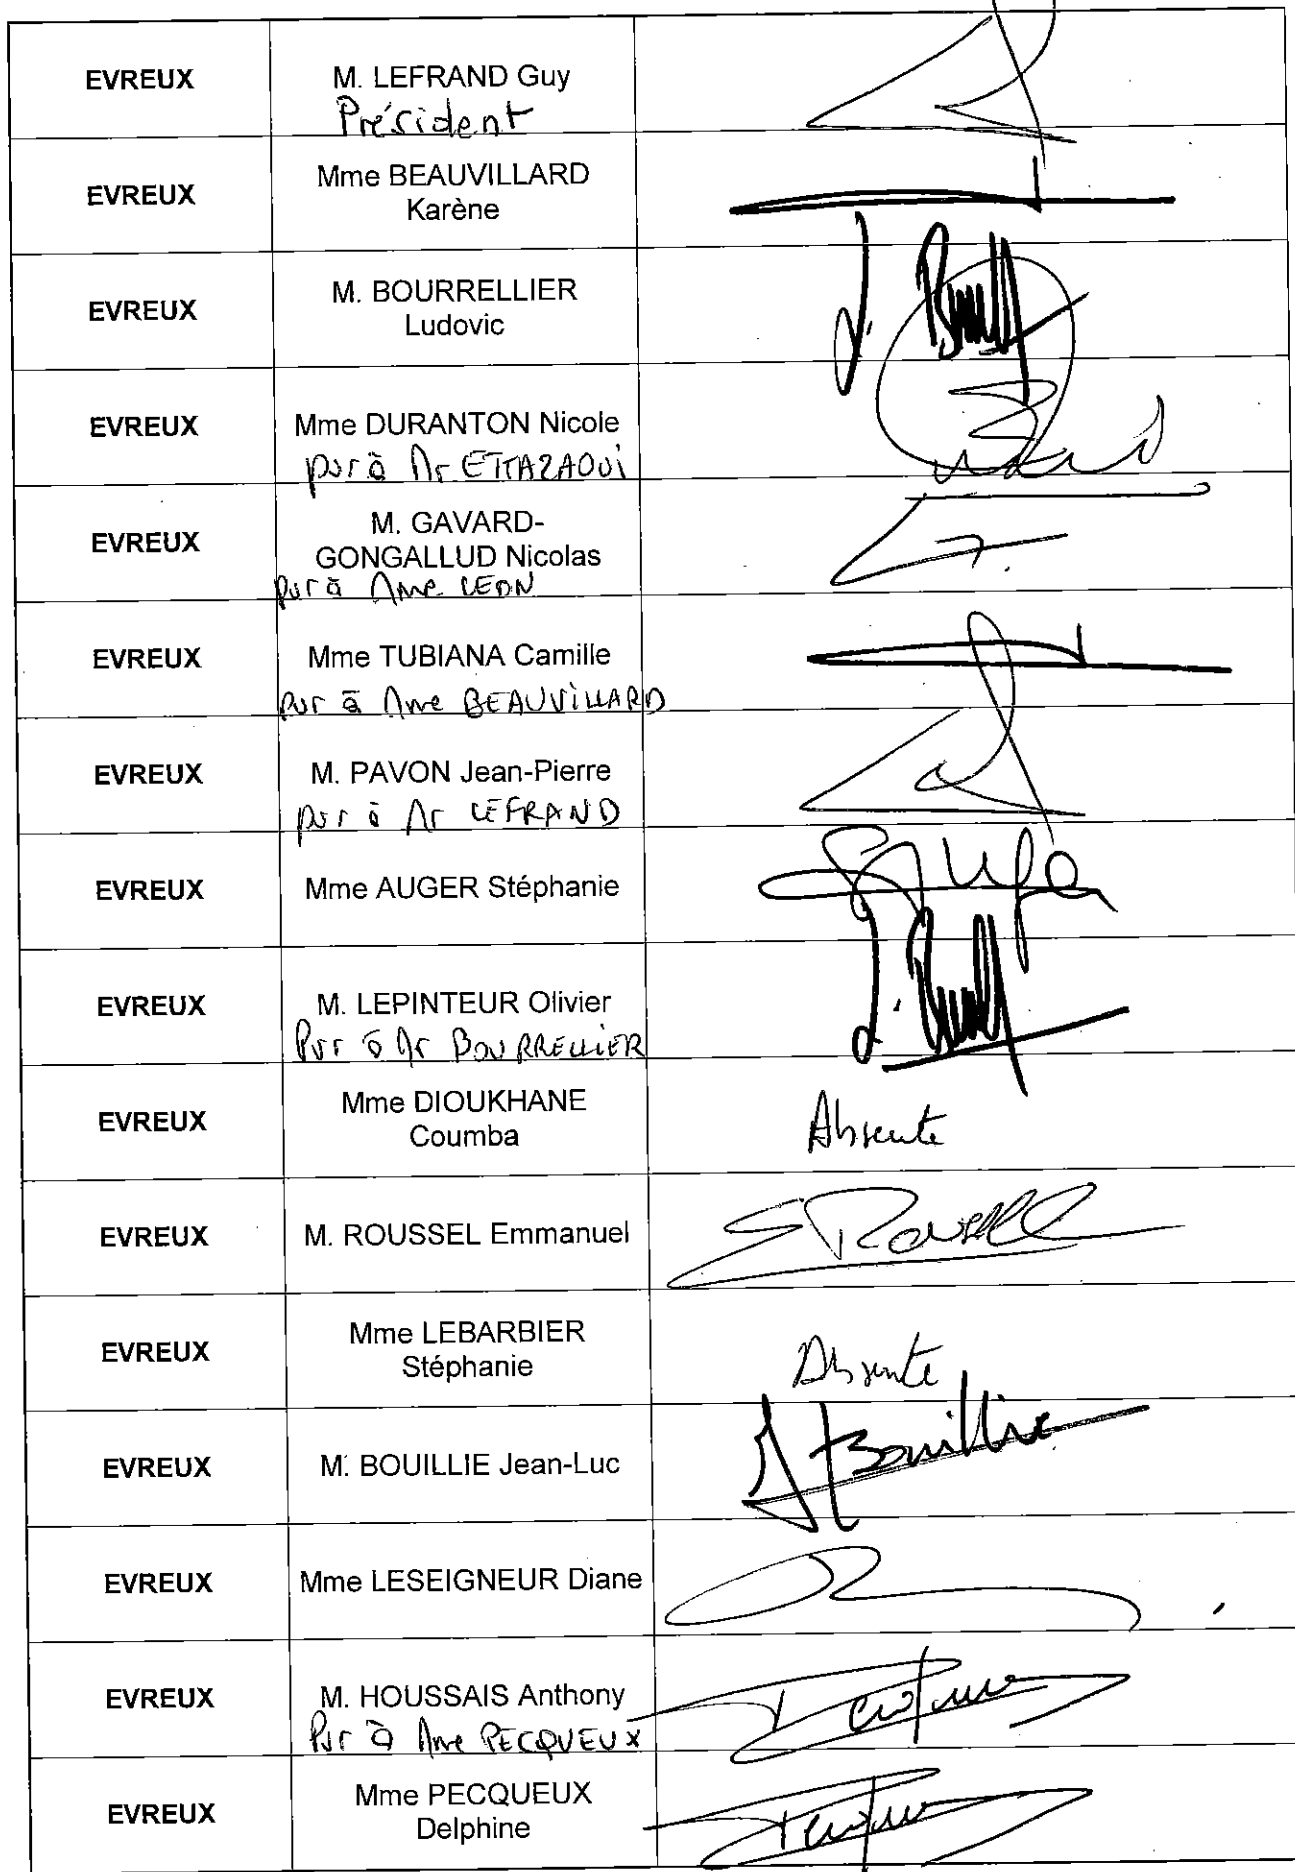 EVREUX
M. LEFRAND Guy
Président
EVREUX
Mme BEAUVILLARD
Karène
EVREUX
M. BOURRELLIER
Ludovic
EVREUX
Mme DURANTON Nicole
pvr à Mr ETTAZAOUI
EVREUX
M. GAVARD-
GONGALLUD Nicolas
pvr à Mme LEON
EVREUX
Mme TUBIANA Camille
pvr à Mme BEAUVILLARD
EVREUX
M. PAVON Jean-Pierre
pvr à Mr LEFRAND
EVREUX
Mme AUGER Stéphanie
EVREUX
M. LEPINTEUR Olivier
Pvr à Mr BOURRELLIER
EVREUX
Mme DIOUKHANE
Coumba
Absente
EVREUX
M. ROUSSEL Emmanuel
ERoussel
EVREUX
Mme LEBARBIER
Stéphanie
Absente
EVREUX
M. BOUILLIE Jean-Luc
Bouillie
EVREUX
Mme LESEIGNEUR Diane
EVREUX
M. HOUSSAIS Anthony
Pvr à Mme PECQUEUX
EVREUX
Mme PECQUEUX
Delphine